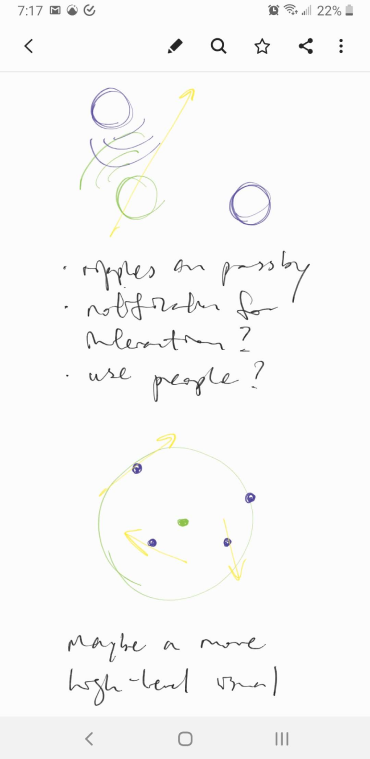 7:17
22%
· ripples on passby
· notification for
interaction?
· use people?
Maybe a more
high-level visual